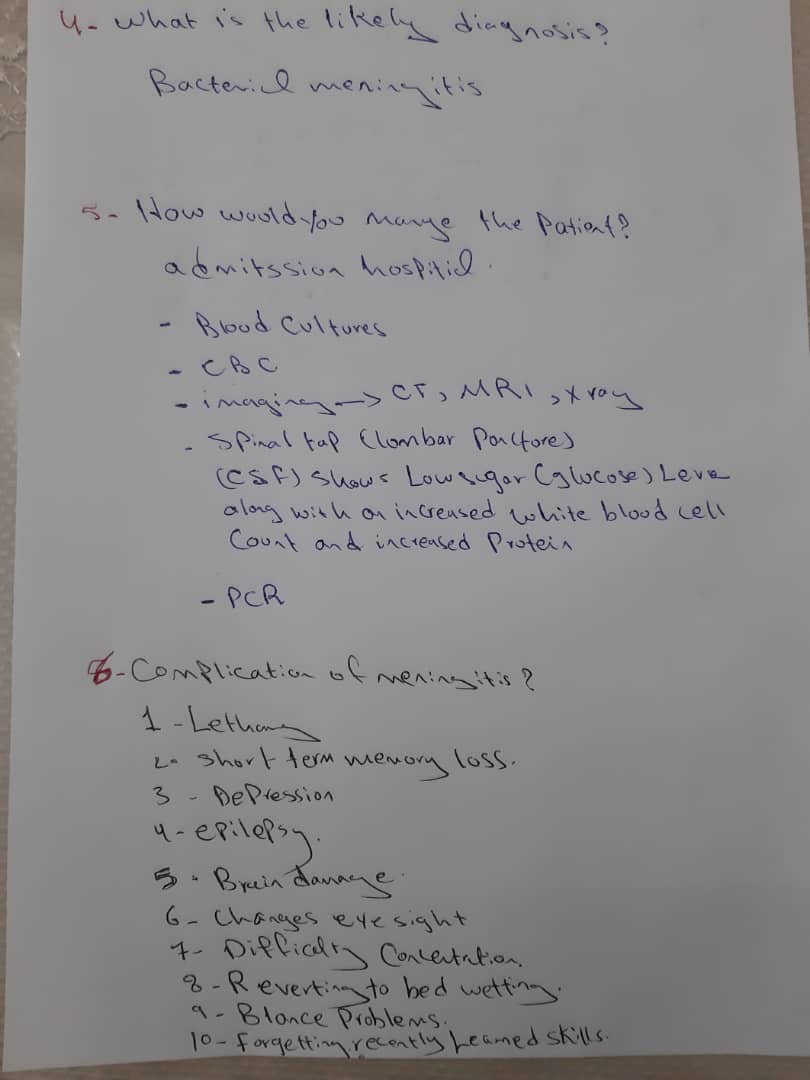 4- What is the likely diagnosis?
Bactericl meningitis
5- How would you mange the Patient?
admitssion hospiticl.
- Blood Cultures
- CBC
- imaging -> CT, MRI, X ray
- Spinal tap (lombar Poncture)
(CSF) shows Low sugar (glucose) Leve
along with an increased white blood cell
Count and increased Protein
- PCR
6- Complication of meningitis?
1 - Lethargy
2- short term memory loss.
3 - Depression
4- epilepsy.
5 - Brain damage.
6- Changes eye sight
7- Difficulty Concentration.
8 - Reverting to bed wetting.
9 - Blance Problems.
10 - Forgetting recently Learned skills.